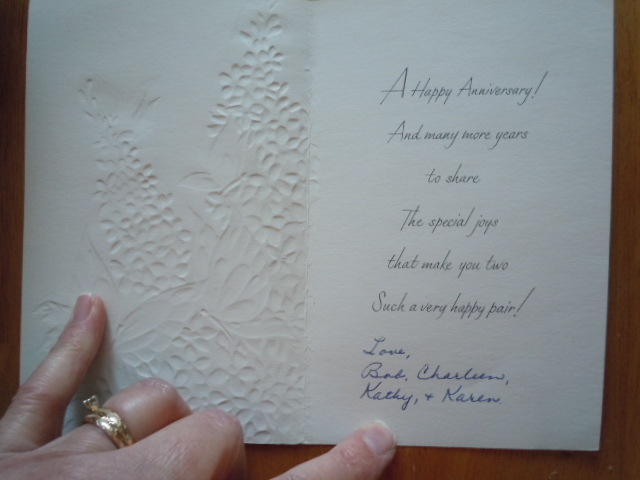 A Happy Anniversary!
And many more years
to share
The special joys
that make you two
Such a very happy pair!
Love,
Bob, Charleen,
Kathy, + Karen.